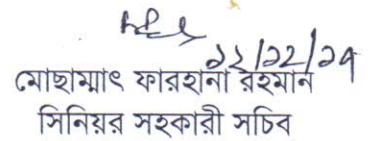 ১২/১২/১৭
মোছাম্মাৎ ফারহানা রহমান
সিনিয়র সহকারী সচিব